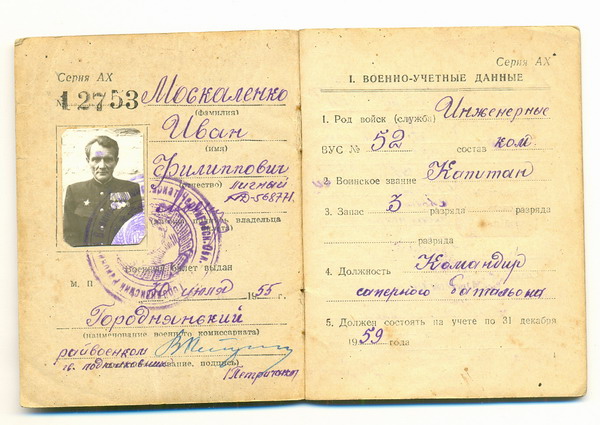 Серия АХ
№ 12753
Москаленко
(фамилия)
Иван
(имя)
Филиппович
(отчество) личный
АD-568771.
владельца
Военный билет выдан
М. П.
июля 1955 г.
Городнянский
(наименование военного комиссариата)
райвоенком
гв. подполковник
звание, подпись)
Серия АХ
I. ВОЕННО-УЧЕТНЫЕ ДАННЫЕ
1. Род войск (служба) Инженерные
ВУС № 52 состав ком.
2. Воинское звание Капитан
3. Запас 3 разряда разряда
разряда
4. Должность Командир
саперного батальона
5. Должен состоять на учете по 31 декабря
1959 года